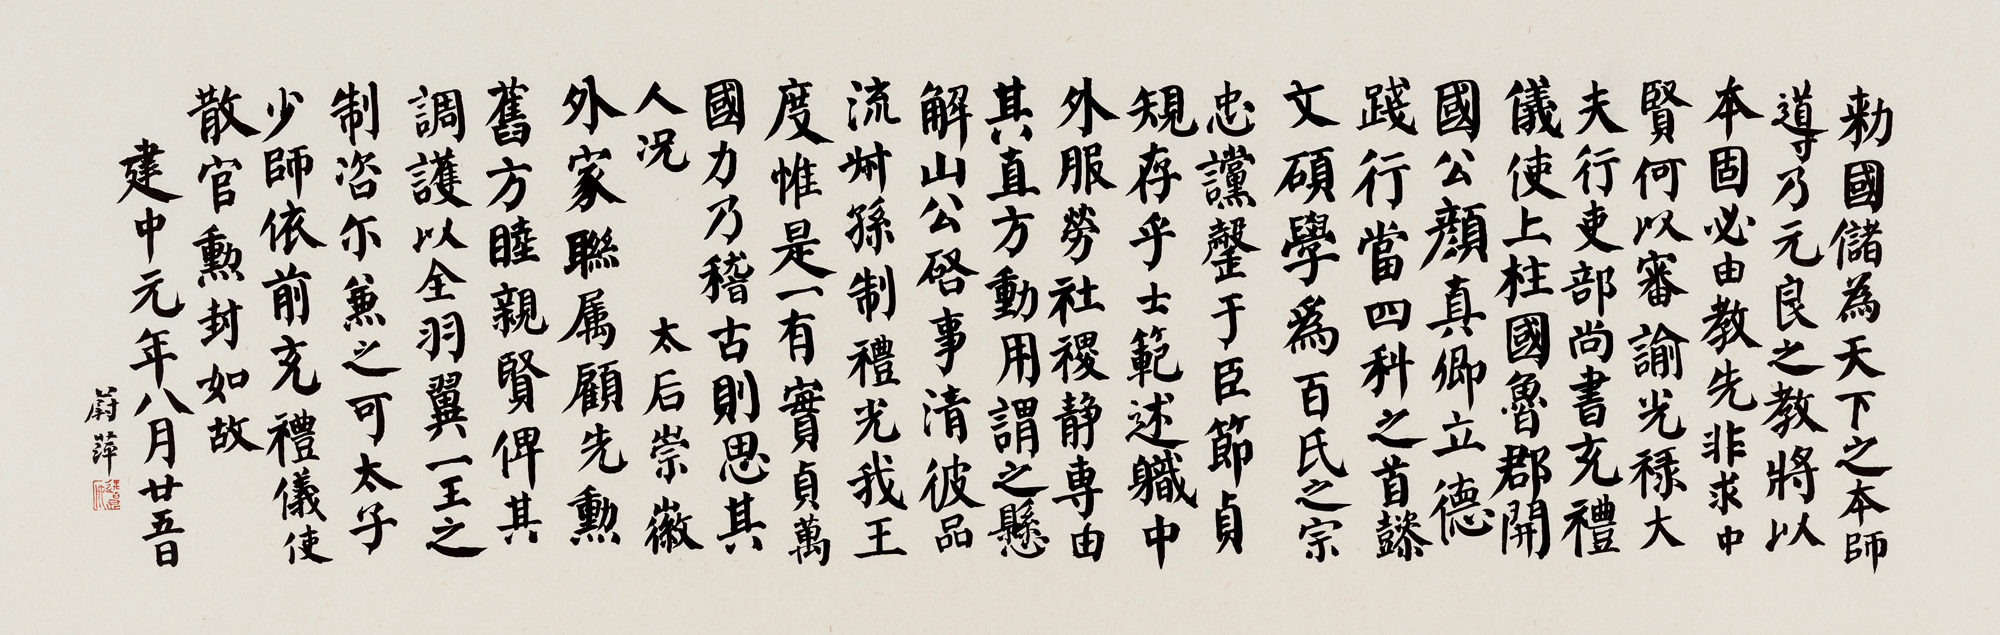 勅國儲為天下之本師
導乃元良之教將以
本固必由教先非求中
賢何以審諭光祿大
夫行吏部尚書充禮
儀使上柱國魯郡開
國公顏真卿立德
踐行當四科之首懿
文碩學為百氏之宗
忠讜罄于臣節貞
規存乎士範述職中
外服勞社稷静專由
其直方動用謂之懸
解山公啓事清彼品
流叔孫制禮光我王
度惟是一有實貞萬
國力乃稽古則思其
人况
太后崇徽
外家聯属顧先勲
舊方睦親賢俾其
調護以全羽翼一王之
制咨尔兼之可太子
少師依前充禮儀使
散官勲封如故
建中元年八月廿五日
蔚萍